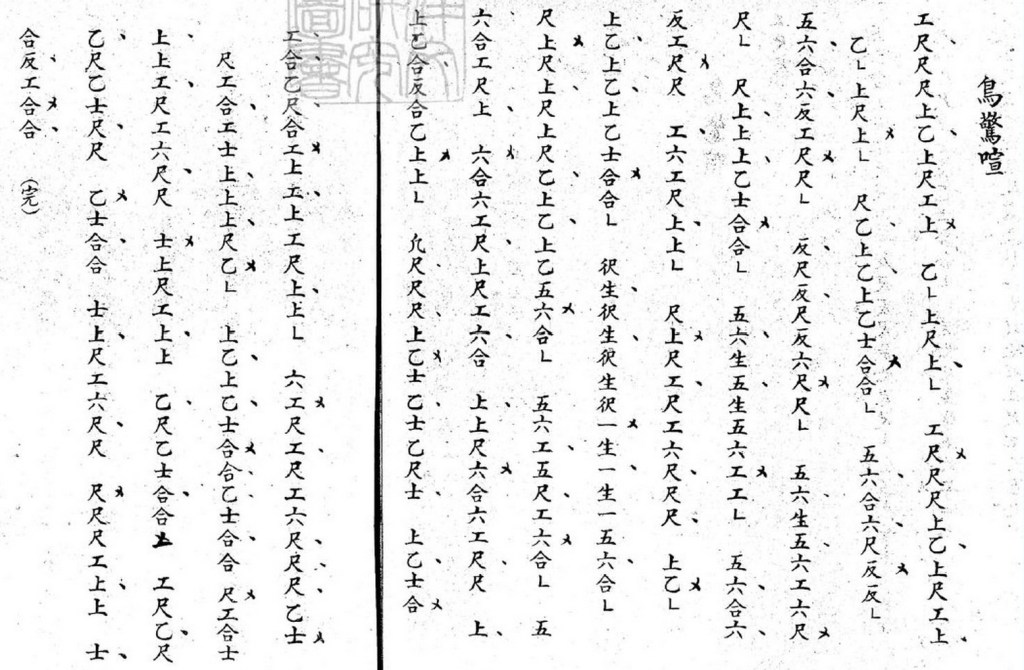 鳥驚喧
工尺尺尺上乙上尺工上 乙∟上尺上∟ 工尺尺尺上乙上尺工上
乙∟上尺上∟ 尺乙上乙上乙士合合∟ 五六合六尺反反∟
五六合六反工尺尺∟ 反尺反尺反六尺尺∟ 五六生五六工六尺
尺∟ 尺上上上乙士合合∟ 五六生五生五六工工∟ 五六合六
反工尺尺 工六工尺上上∟ 尺上尺工尺工六尺尺尺 上乙∟
上乙上乙上乙士合合∟ 伬生伬生伬生伬一生一生一五六合∟
尺上尺上尺上尺乙上乙上乙五六合∟ 五六工五尺工六合∟ 五
六合工尺上 六合六工尺上尺工六合 上上尺六合六工尺尺 上
上乙合反合乙上上∟ 尺尺尺上乙士乙士乙尺士 上乙士合
工合乙尺合工上工上工尺上上∟ 六工尺工尺工六尺尺尺乙士
尺工合工士上上上尺乙∟ 上乙上乙士合合乙士合合 尺工合士
上上工尺工六尺尺 士上尺工上上 乙尺乙士合合上 工尺乙尺
乙尺乙士尺尺 乙士合合 士上尺工六尺尺 尺尺尺工上上 士
合反工合合 (完)